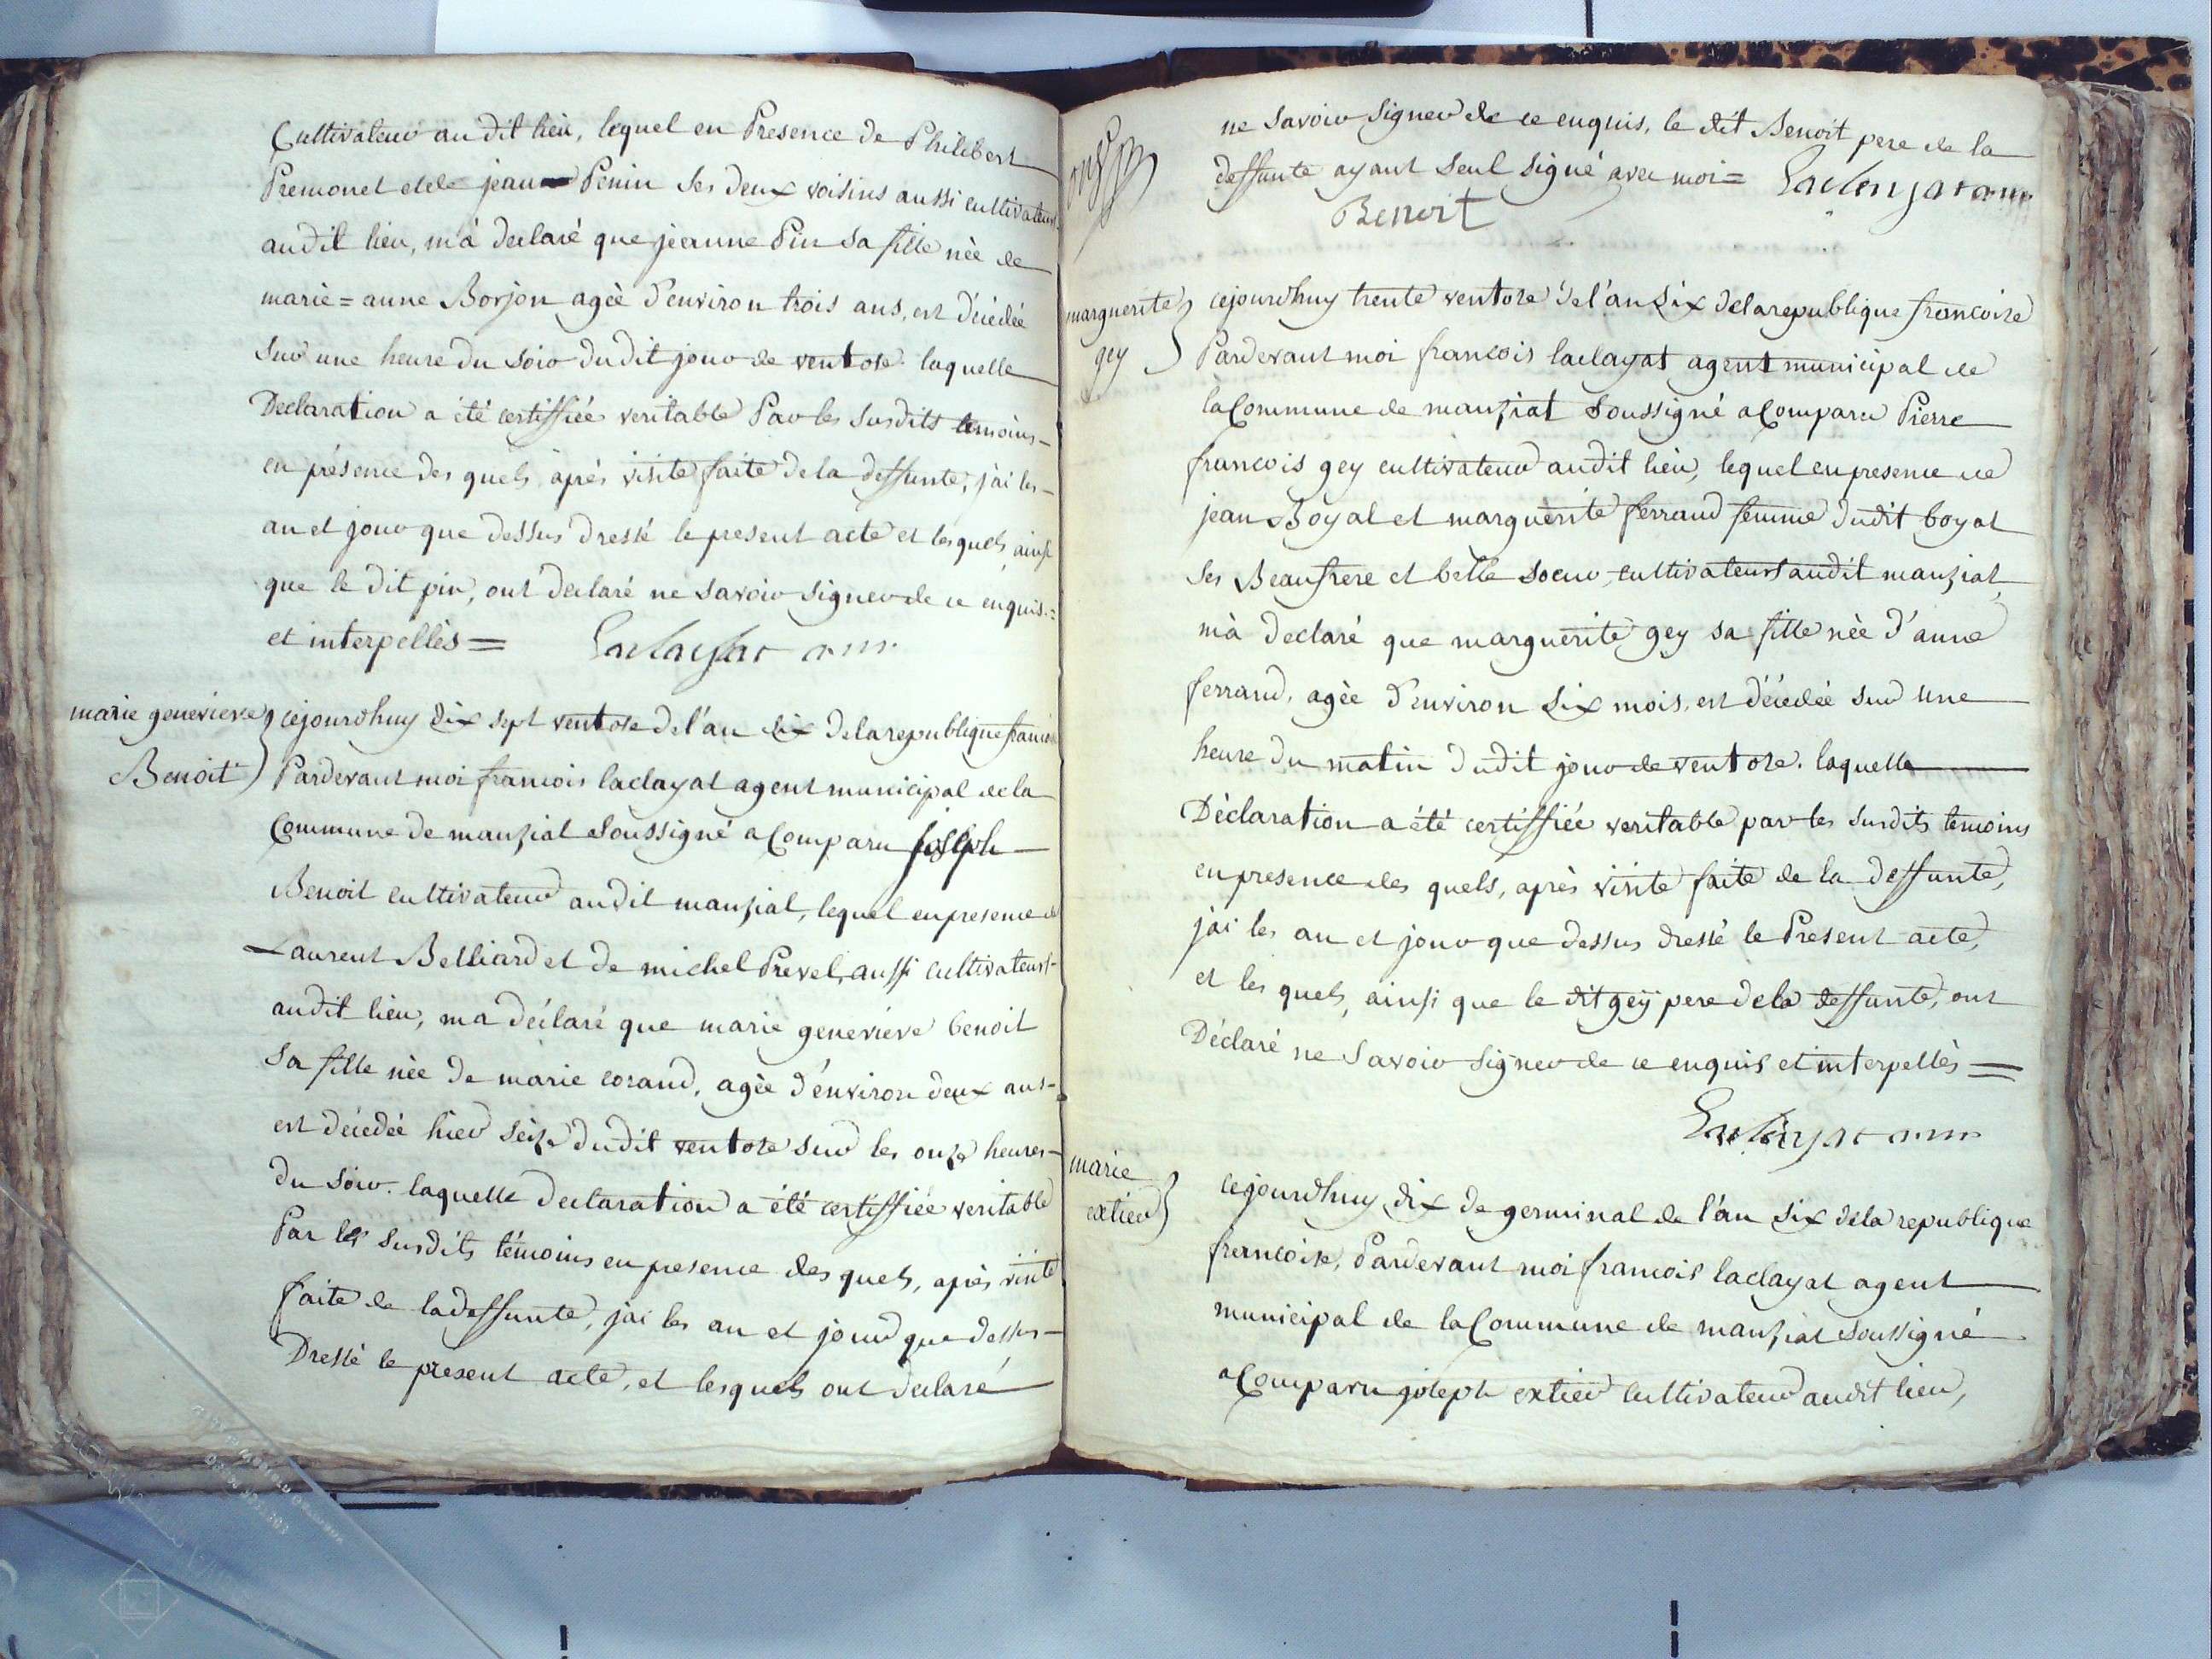 Cultivateur audit lieu, lequel en Presence de Philibert
Premonet et de jean Penin ses deux voisins aussi cultivateurs
audit lieu, m'à declaré que jeanne Pin sa fille née de
marie = anne Borjon agèe d'environ trois ans, est décédée
sur une heure du soir dudit jour de ventose. laquelle
Declaration a été certiffiée veritable Par les susdits temoins
en présence des quels après visite faite de la deffunte, j'ai les
an et jour que dessus dressé le present acte et lesquels ainsi
que le dit pin, ont declaré ne savoir signer de ce enquis =
et interpellès = Laclayat a.m.
marie genevieve
Benoit
cejourdhuy dix sept ventose de l'an six de la republique francoise
Pardevant moi francois laclayat agent municipal de la
Commune de manziat soussigné a Comparu joseph
Benoit cultivateur audit manziat, lequel en presence de
Laurent Belliard et de michel Prevel, aussi cultivateurs
audit lieu, m a déclaré que marie genevieve benoit
sa fille née de marie corand, agèe d'environ deux ans
est décédée hier seize dudit ventose sur les onze heures
du soir. laquelle declaration a été certiffiée veritable
Par les susdits témoins en presence des quels, après visite
faite de la deffunte, j'ai les an et jour que dessus
Dressé le present acte, et lesquels ont declaré
ne savoir signer de ce enquis, le dit Benoit pere de la
deffunte ayant seul signé avec moi = Laclayat a.m.
Benoit
marguerite
gey
cejourdhuy trente ventose de l'an six de la republique francoise
Pardevant moi francois laclayat agent municipal de
la Commune de manziat soussigné a Comparu Pierre
francois gey cultivateur audit lieu, lequel en presence de
jean Boyat et marguerite ferrand femme dudit boyat
ses Beaufrere et belle soeur, cultivateurs audit manziat,
m'à declaré que marguerite gey sa fille née d'anne
ferrand, agèe d'environ six mois, est décédée sur une
heure du matin dudit jour de ventose. laquelle
Déclaration a été certiffiée veritable par les susdits temoins
en presence des quels, après visite faite de la deffunte,
j'ai les an et jour que dessus dressé le Present acte,
et les quels, ainsi que le dit gey pere de la deffunte, ont
Déclaré ne savoir signer de ce enquis et interpellès =
Laclayat a.m.
marie
extier
cejourdhuy dix de germinal de l'an six de la republique
francoise, Pardevant moi francois laclayat agent
municipal de la Commune de manziat soussigné
a Comparu joseph extier cultivateur audit lieu,